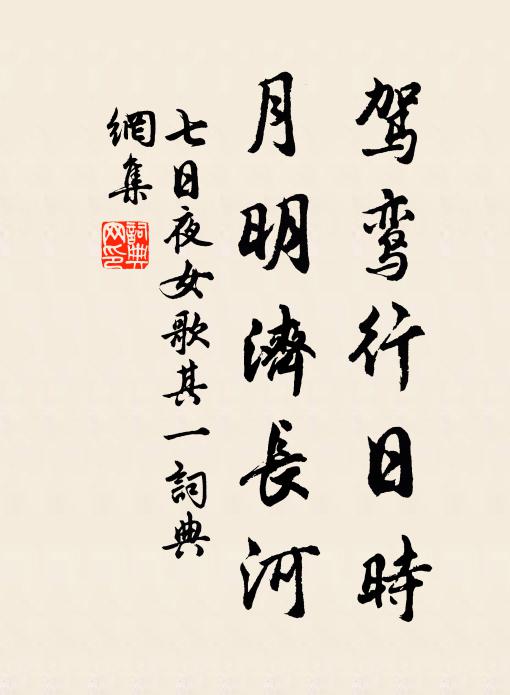 驾鸾行日時
月明濟長河
七日夜女歌其一詞典
網集
詞典网印